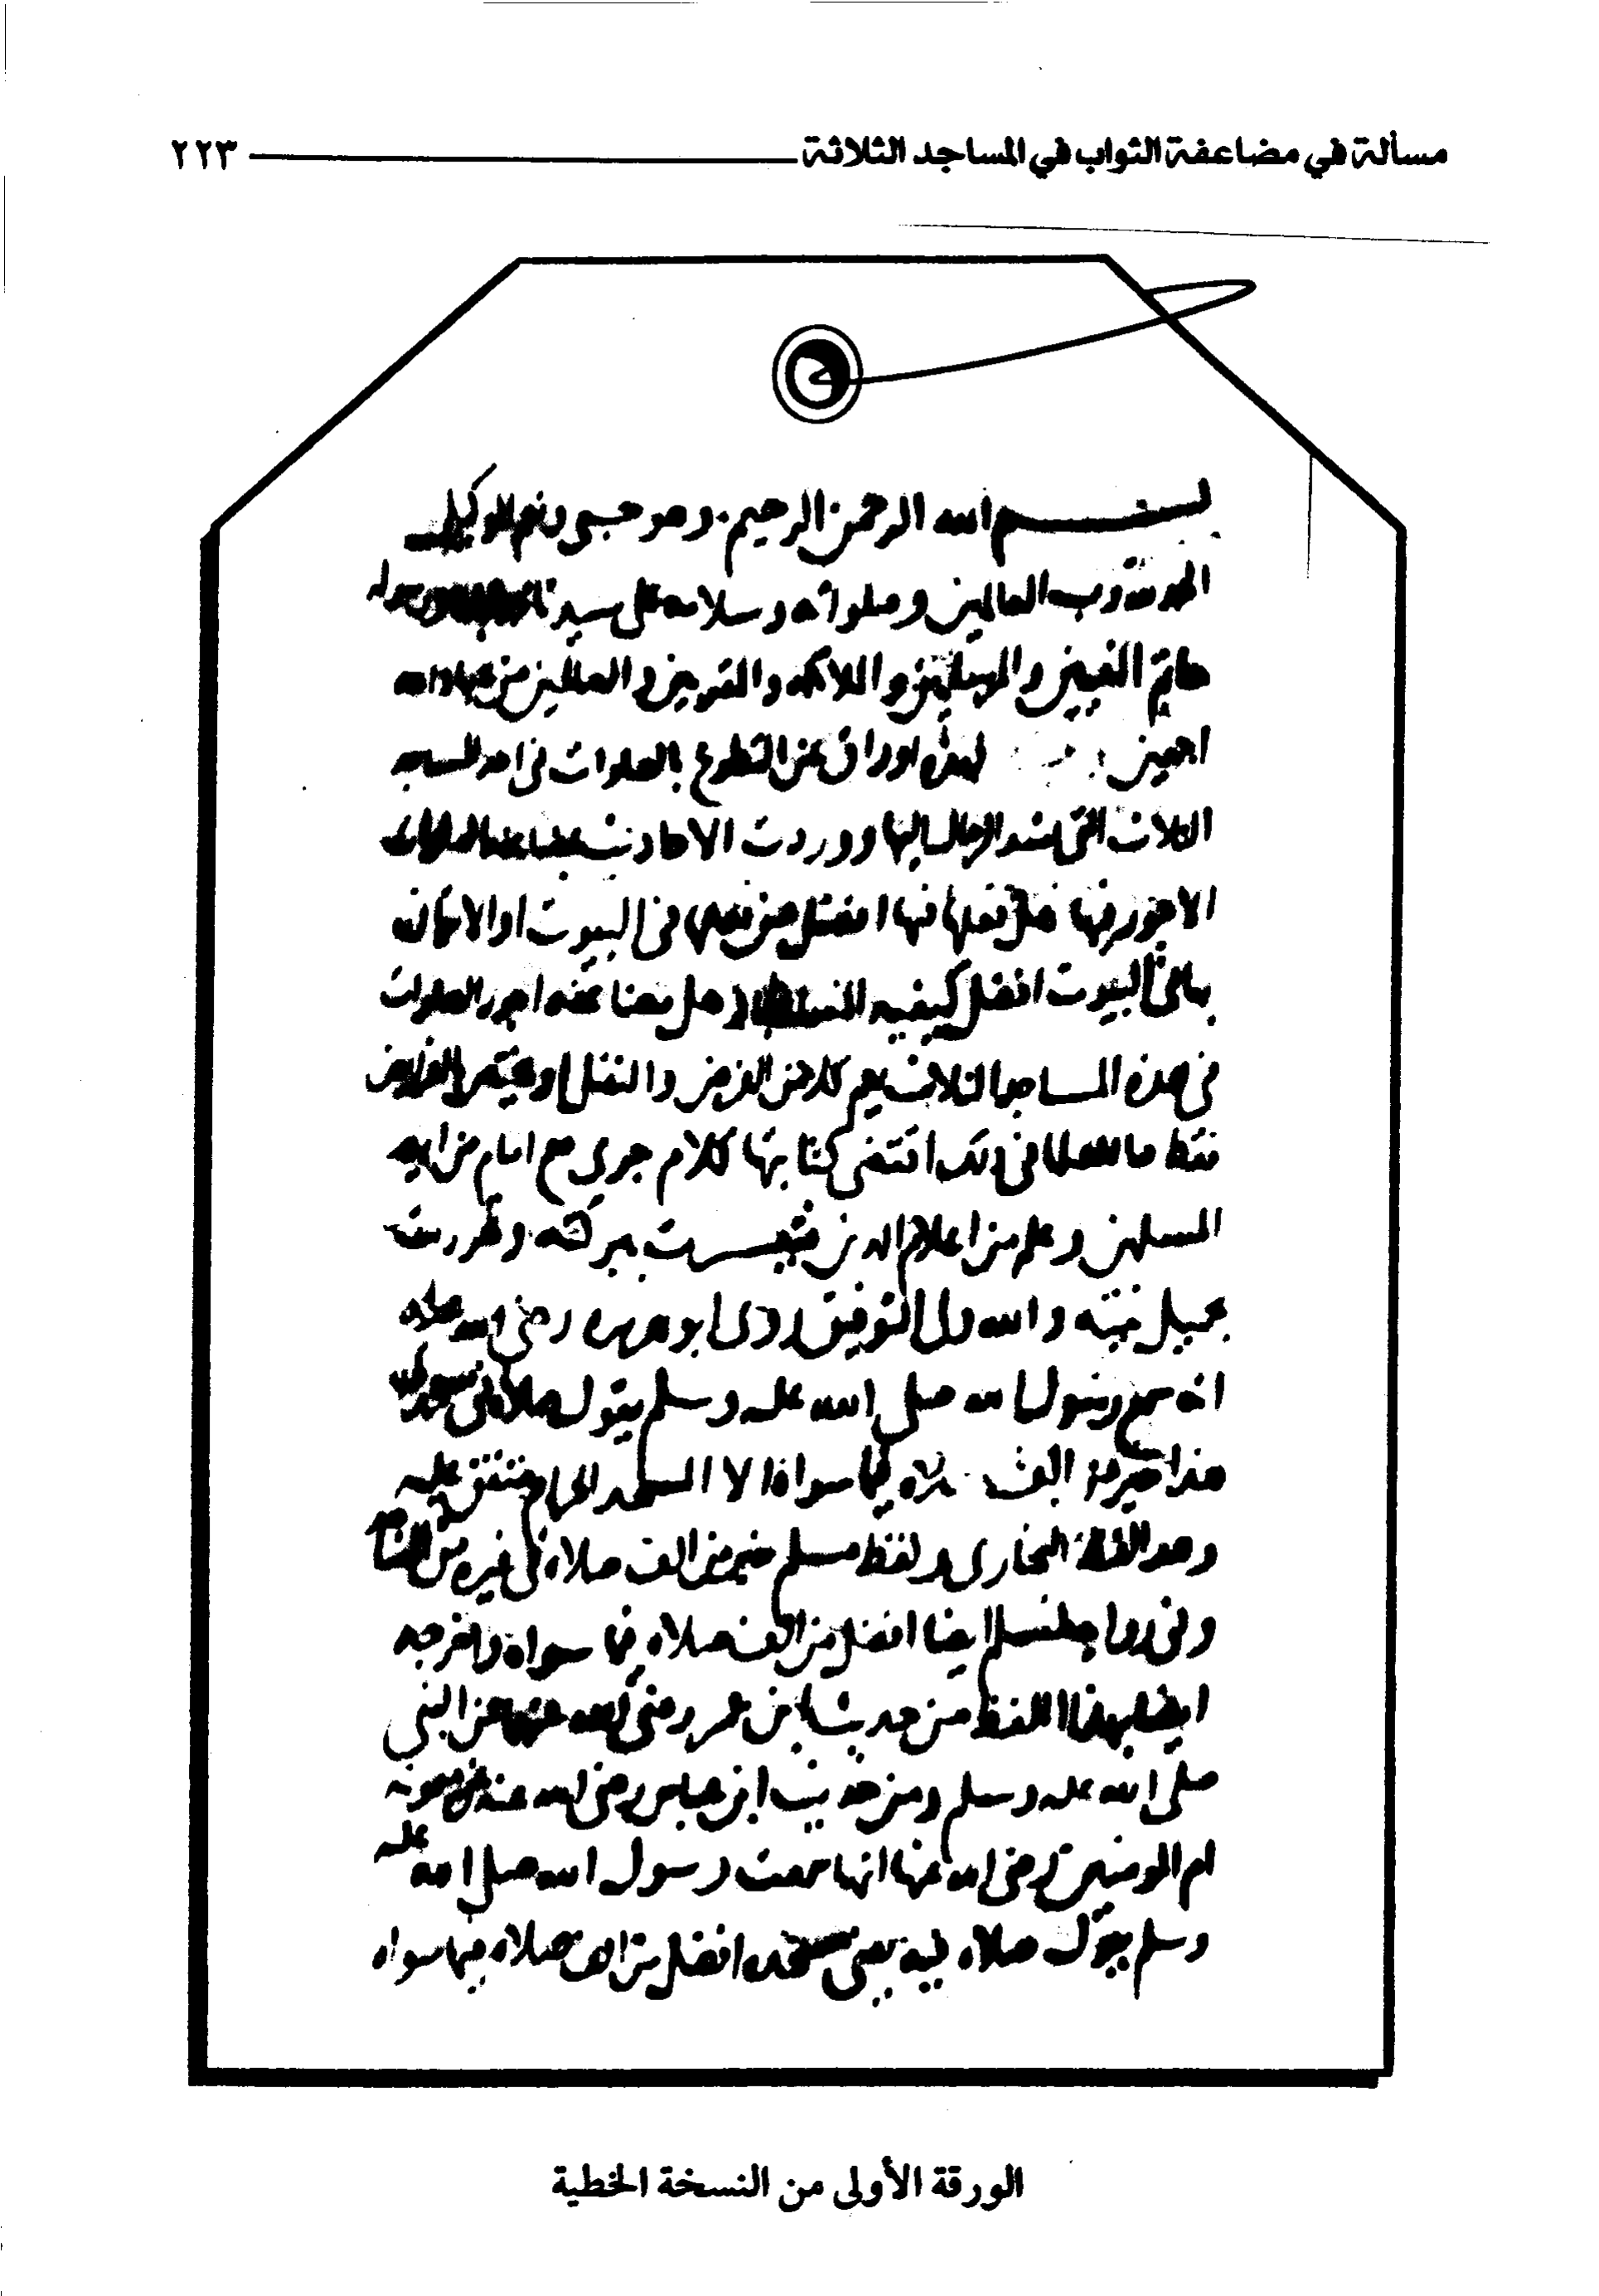 مسألة في مضاعفة الثواب في المساجد الثلاثة ٢٢٣
بسم الله الرحمن الرحيم وهو حسبي ونعم الوكيل
الحمد لله رب العالمين وصلواته وسلامه على سيدنا
خاتم النبيين والمرسلين والملائكة والمقربين والصالحين من
اجمعين لهذه اوراق عن التطوع بالصلوات في احد المساجد
الثلاث التي تشد الرحال اليها ووردت الاحاديث
الاجور فيها هل فعلها فيها افضل من فعلها في البيوت او الاتيان
بها في البيوت افضل كبقية وهل مضاعفة اجور الصلوات
في هذه المساجد الثلاث يعم كلا من الفرض والنفل او يختص الفرايض
فقط في ذلك اقتضى كتابتها كلام جرى مع امام من ايمه
المسلمين وعلم من اعلام الدين بركته وظهرت
بجميل نيته والله ولي التوفيق روى ابو هريره رضي الله
انه سمع رسول الله صلى الله عليه وسلم يقول صلاة في
هذا خير من الف صلاه فيما سواه الا المسجد الحرام متفق عليه
وهذا لفظ البخاري ولفظ مسلم خير من الف صلاه في غيره من
وفي روايه لمسلم ايضا افضل من الف صلاه فيما سواه واخرجه
ايضا بهذا اللفظ من حديث ابن عمر رضي الله عنهما عن النبي
صلى الله عليه وسلم ومن حديث ابن عباس رضي الله عنه عن ميمونه
ام المومنين رضي الله عنها انها سمعت رسول الله صلى الله عليه
وسلم يقول صلاه فيه يعني مسجده افضل من الف صلاه فيما سواه
الورقة الأولى من النسخة الخطية